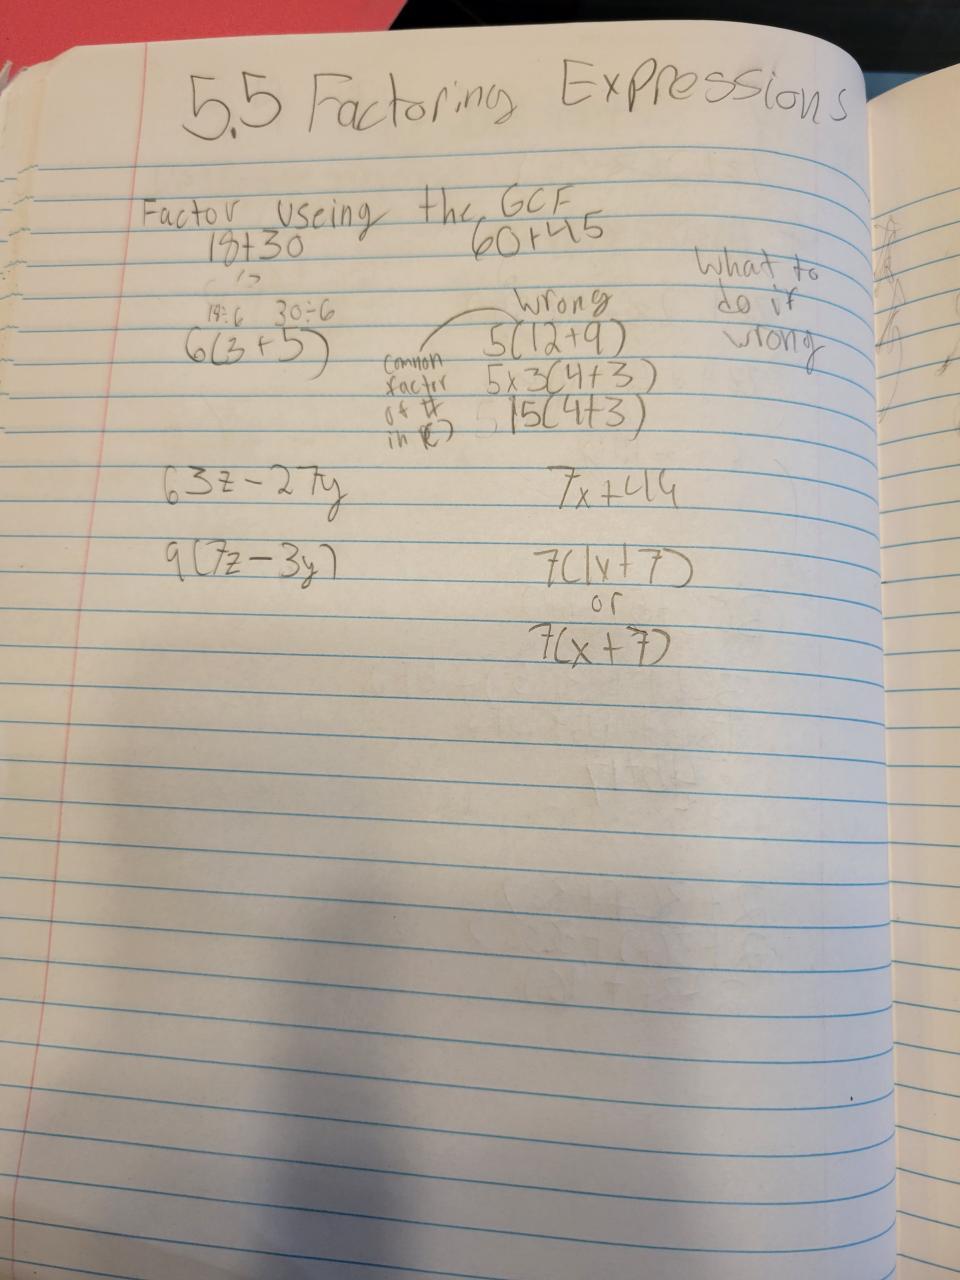 5.5 Factoring Expressions
Factor useing the GCF
18+30
18÷6 30÷6
6(3+5)
60+45
Wrong
5(12+9)
5x3(4+3)
15(4+3)
common
factor
of #
in ()
What to
do if
wrong
63z-27y
9(7z-3y)
7x+44
7(1x+7)
or
7(x+7)